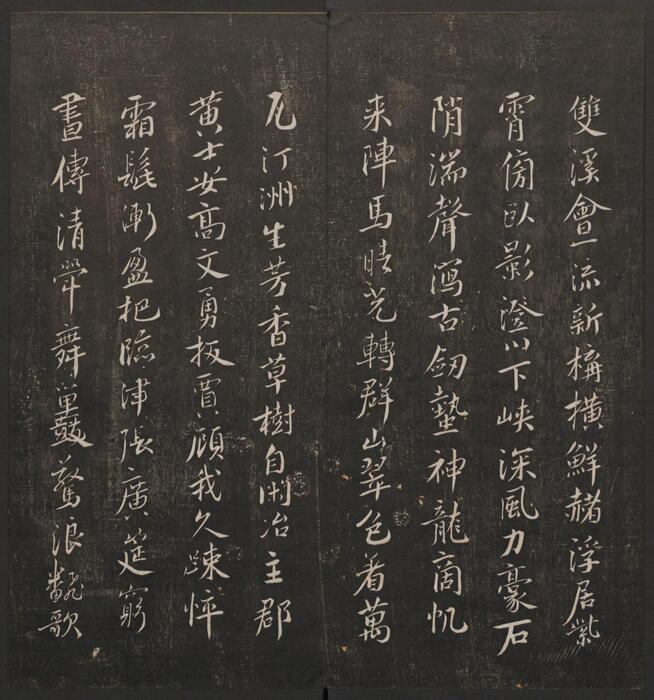 雙溪會一流新構橫鮮赭浮居紫
霄傍臥影澄川下峽深風力豪石
陗湍聲瀉古劒蟄神龍商帆
来陣馬晴光轉群山翠色着萬
瓦汀洲生芳香草樹自閑冶主郡
黃士安高文勇扳賈顧我久踈悴
霜髭漸盈把臨津張廣筵窮
晝傳清斝舞鼓驚浪翻歌